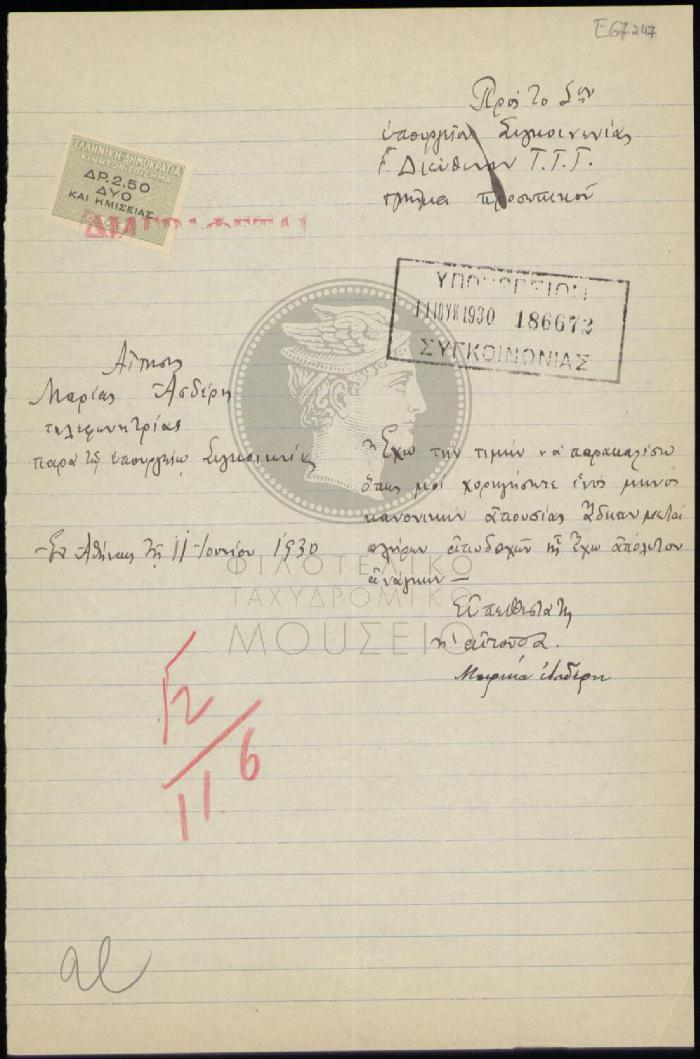 Ε67247
Πρός το Σον
ὑπουργεῖον Συγκοινωνίας
Διεύθυνσιν Τ.Τ.Τ.
τμῆμα προσωπικού
ΕΛΛΗΝΙΚΗ ΔΗΜΟΚΡΑΤΙΑ
ΚΙΝΗΤΟΝ ΕΠΙΣΗΜΑ
ΔΡ. 2.50
ΔΥΟ
ΚΑΙ ΗΜΙΣΕΙΑΣ
ΥΠΟΥΡΓΕΙΟΝ
11 ΙΟΥΝ 1930 186672
ΣΥΓΚΟΙΝΩΝΙΑΣ
Αἴτησις
Μαρίας Ἀσδέρη
τηλεφωνητρίας
παρά τῷ ὑπουργείῳ Συγκοινωνίας
Ἐν Ἀθήναις τῇ 11 Ἰουνίου 1930
Ἔχω τήν τιμήν νά παρακαλέσω
ὅπως μοι χορηγήσητε ἑνός μηνός
κανονικήν ἀπουσίας ἄδειαν μετά
πλήρων ἀποδοχῶν ἧς ἔχω ἀπόλυτον
ἀνάγκην —
Εὐπειθεστάτη
ἡ αἰτοῦσα.
Μαρίκα Ἀσδέρη
ΦΙΛΟΤΕΛΙΚΟ
ΤΑΧΥΔΡΟΜΙΚΟ
ΜΟΥΣΕΙΟ
12
11 6